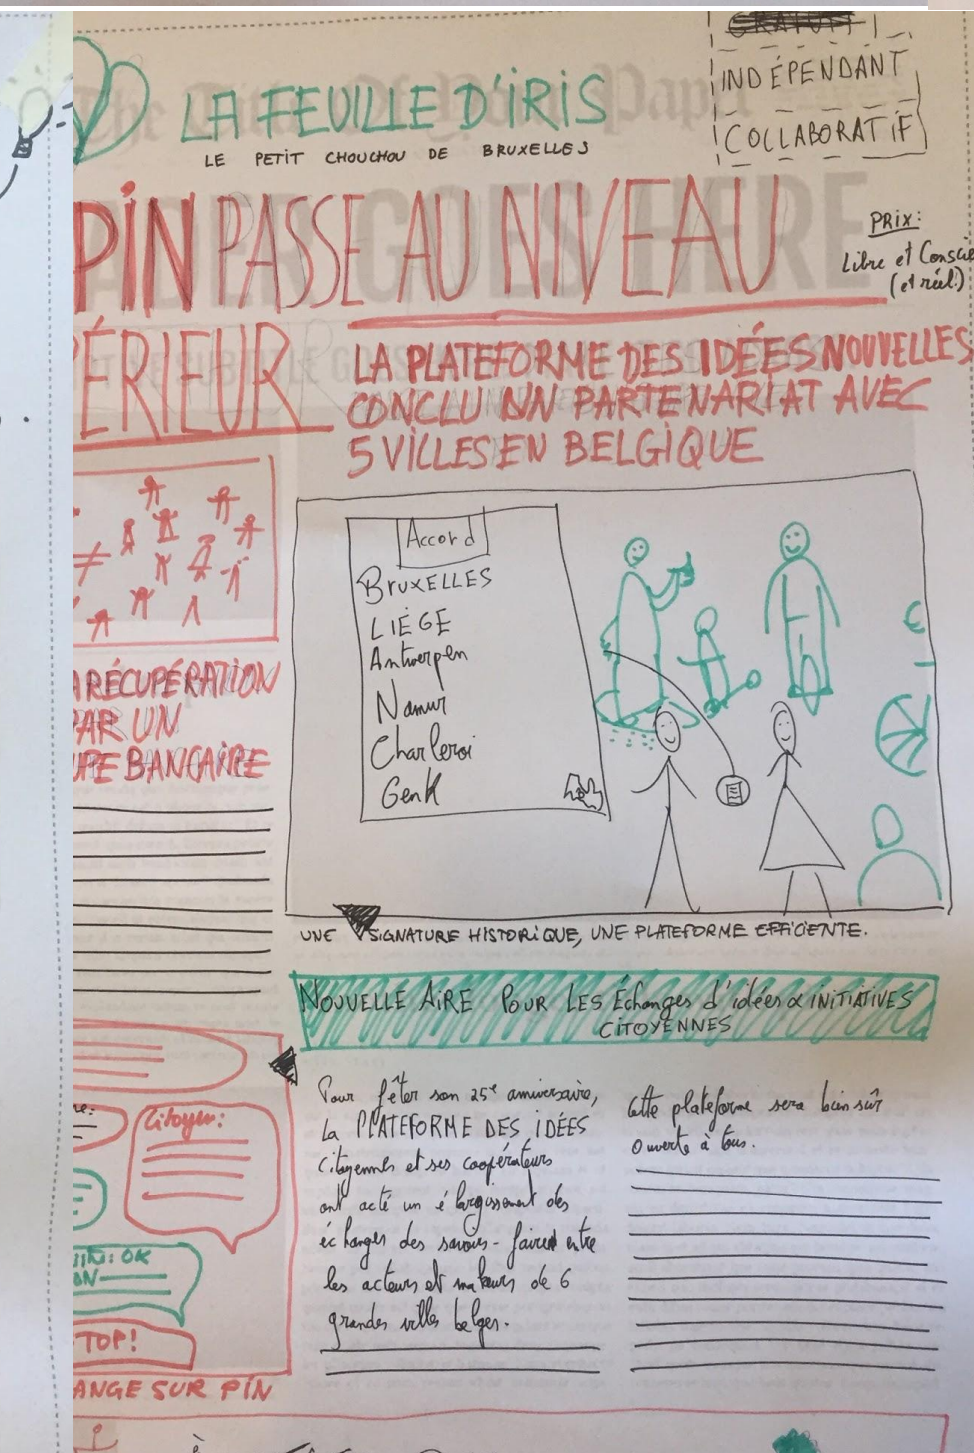 GRATUIT
INDÉPENDANT
COLLABORATIF
LA FEUILLE D'IRIS
LE PETIT CHOUCHOU DE BRUXELLES
PIN PASSE AU NIVEAU
ÉRIEUR
PRIX:
Libre et Conscie
(et réel!)
LA PLATEFORME DES IDÉES NOUVELLES
CONCLU UN PARTENARIAT AVEC
5 VILLES EN BELGIQUE
Accord
BRUXELLES
LIÈGE
Antwerpen
Namur
Charleroi
GenK
A RÉCUPÉRATION
PAR UN
UPE BANCAIRE
UNE SIGNATURE HISTORIQUE, UNE PLATEFORME EFFICIENTE.
NOUVELLE AIRE POUR LES Échanges d'idées & INITIATIVES
CITOYENNES
Pour fêter son 25e anniversaire,
La PLATEFORME DES IDÉES
Citoyennes et ses coopérateurs
ont acté un élargissement des
échanges des savoirs-faires entre
les acteurs et moteurs de 6
grandes villes belges.
Cette plateforme sera bien sûr
Ouverte à tous.
Citoyen:
OK
TOP!
ANGE SUR PIN